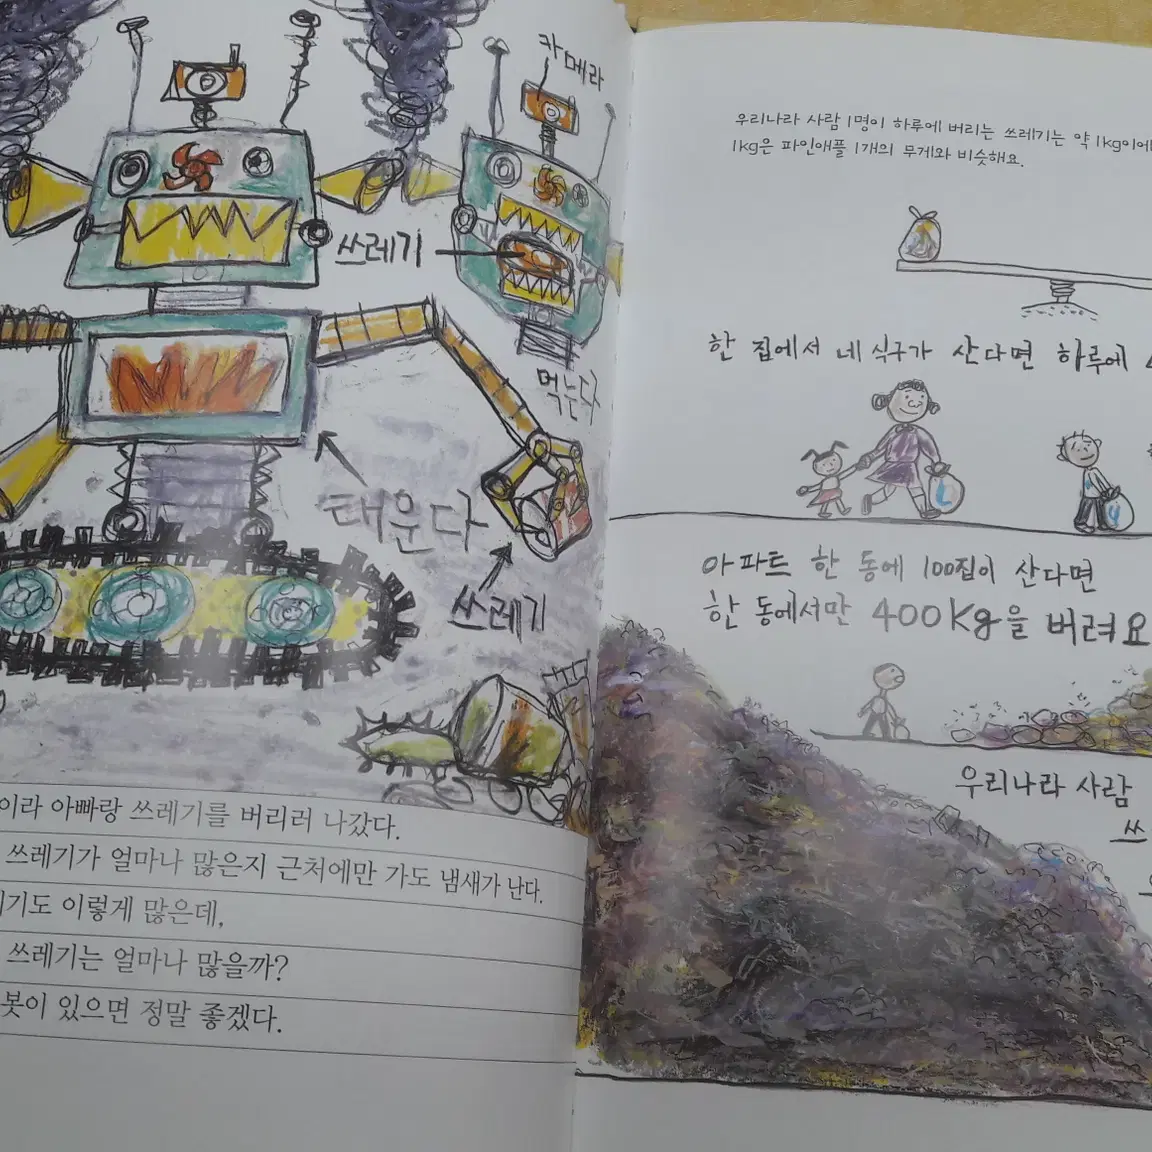 카메라
쓰레기
먹는다
태운다
쓰레기
이라 아빠랑 쓰레기를 버리러 나갔다.
쓰레기가 얼마나 많은지 근처에만 가도 냄새가 난다.
기도 이렇게 많은데,
쓰레기는 얼마나 많을까?
봇이 있으면 정말 좋겠다.
우리나라 사람 1명이 하루에 버리는 쓰레기는 약 1kg이에
1kg은 파인애플 1개의 무게와 비슷해요.
한 집에서 네 식구가 산다면 하루에
아파트 한 동에 100집이 산다면
한 동에서만 400Kg을 버려요
우리나라 사람
쓰